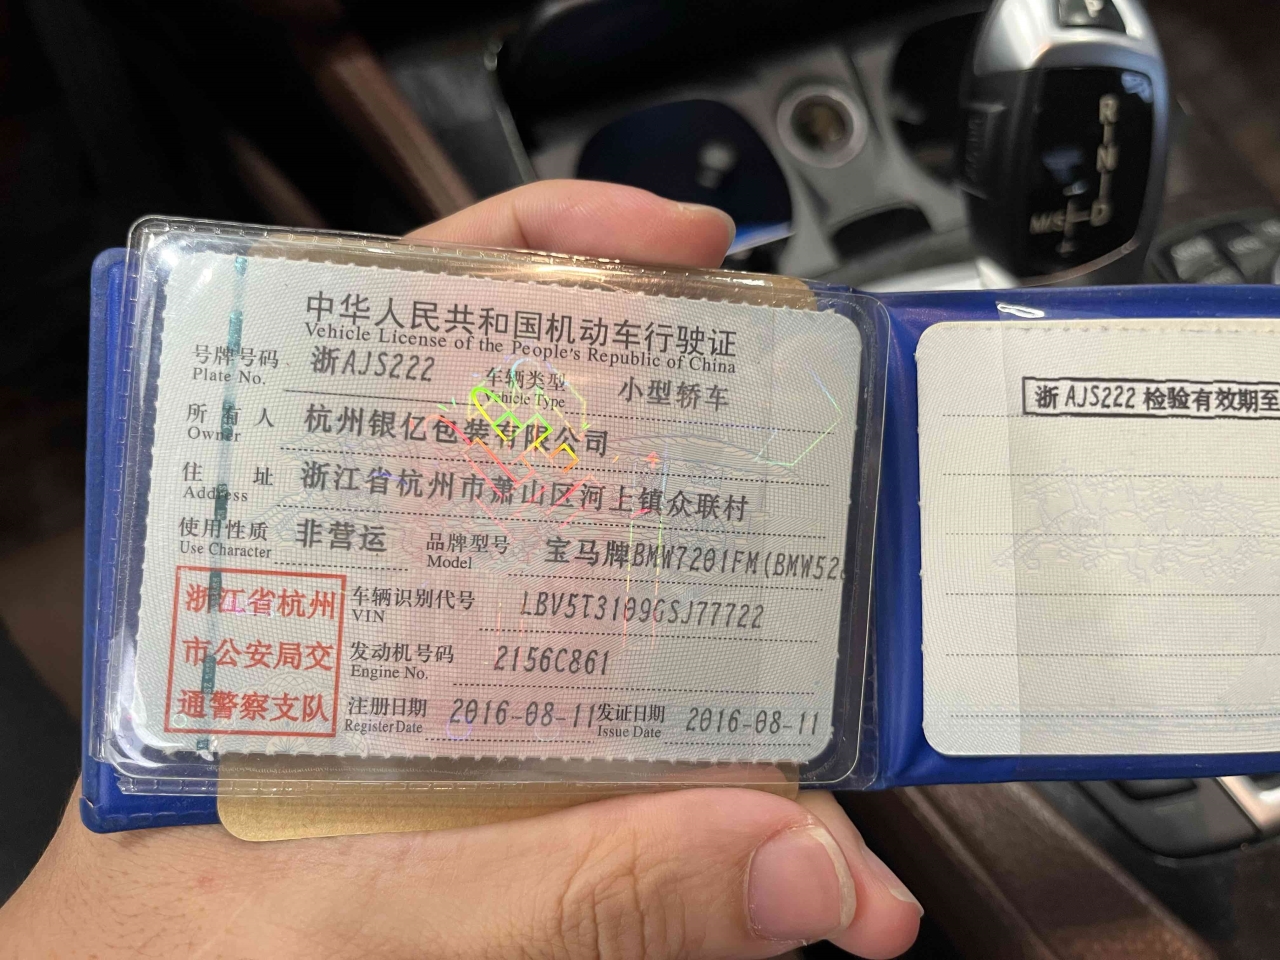 中华人民共和国机动车行驶证
Vehicle License of the People's Republic of China
号牌号码 浙AJS222 车辆类型 小型轿车
Plate No. Vehicle Type
所有人 杭州银亿包装有限公司
Owner
住址 浙江省杭州市萧山区河上镇众联村
Address
使用性质 非营运 品牌型号 宝马牌BMW7201FM(BMW52
Use Character Model
浙江省杭州
市公安局交
通警察支队
车辆识别代号 LBV5T3109GSJ77722
VIN
发动机号码 2156C861
Engine No.
注册日期 2016-08-11 发证日期 2016-08-11
Register Date Issue Date
浙AJS222 检验有效期至
P
R
N
M/S D